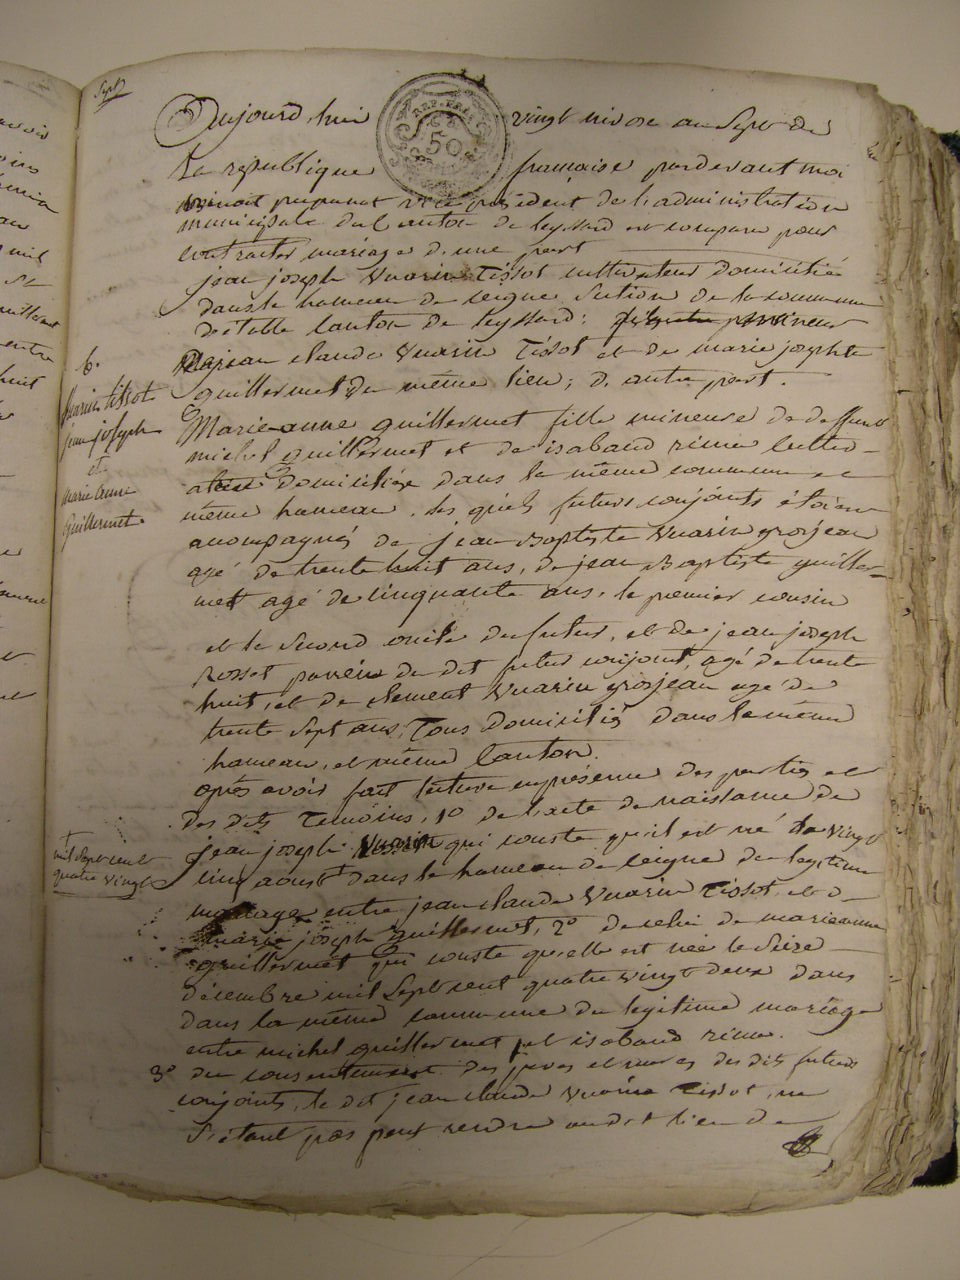 Sept
Aujourd'hui vingt nivose an Sept de
La république française pardevant moi
président de l'administration
municipale du Canton de leyssard est comparu pour
contracter mariage d'une part
jean joseph Vuarin Tissot cultivateur domicilié
dans le hameau de leigne Section de la commune
canton de leyssard;
De jean claude Vuarin Tissot et de marie josephte
guillermet du même lieu; d'autre part.
Marie anne guillermet fille mineure de deffunt
michel guillermet et de isabaud rime
domiciliée dans la même commune et
même hameau, les quels futurs conjoints étoient
acompagnés de jean Baptiste Vuarin grosjean
agé de trente huit ans, de jean Baptiste guiller=
met agé de cinquante ans, le premier cousin
et le Second oncle du futur, et de jean joseph
Rosset du dit futur conjoint, agé de trente
huit, et de clement Vuarin grosjean agé de
trente Sept ans, Tous domiciliés dans le même
hameau, et même Canton.
après avoir fait lecture en présence des parties et
des dits Témoins, 1º de l'acte de naissance de
jean joseph Vuarin qui conste qu'il est né le vingt
cinq aoust dans le hameau de leigne de legitime
mariage entre jean claude Vuarin Tissot, et de
marie joseph guillermet, 2º de celui de marieanne
guillermet qui conste qu'elle est née le Seize
décembre mil Sept cent quatre vingt deux dans
dans la même commune du legitime mariage
entre michel guillermet et isabaud rime.
3º du consentement des peres et meres des dits futurs
conjoints, le dit jean claude Vuarin Tissot, ne
S'étant pas peut rendre au dit lieu de
6.
Vuarin tissot
jean joseph
et
marie anne
Guillermet.
mil Sept cent
quatre vingt
REP. FRA
50